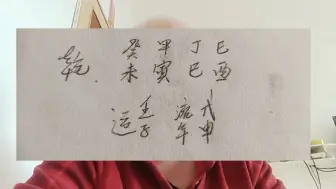 乾 癸 甲 丁 己
未 寅 巳 酉
运 壬子 流年 戊申